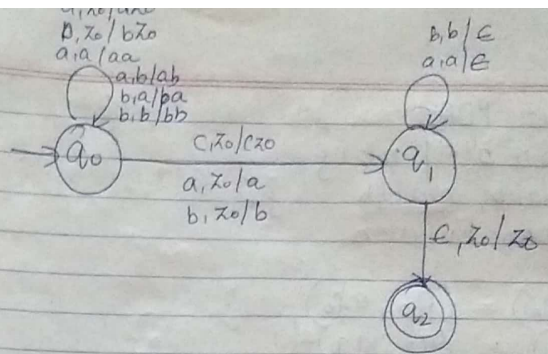 b, z₀ / bz₀
a,a / aa
a,b/ab
b,a/ba
b,b/bb
q₀
c,z₀/cz₀
a, z₀/a
b, z₀/b
b,b/ϵ
a,a/ϵ
q₁
ϵ, z₀/z₀
q₂